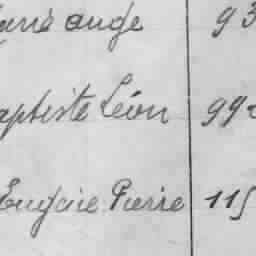 ange 93
aptiste Léon 99
Eugène Pierre 115